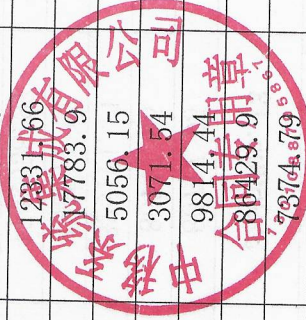 12331.66
17783.9
5056.15
3071.54
9814.44
86429.9
7374.79
中移系统集成有限公司
合同专用章